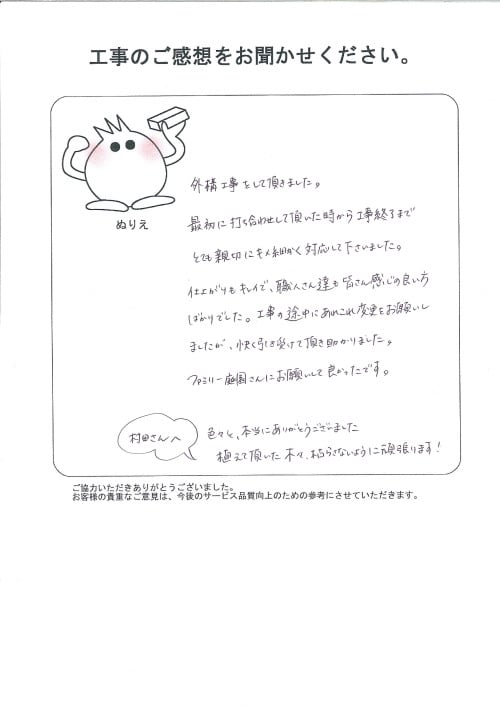 工事のご感想をお聞かせください。
ぬりえ
外構工事をして頂きました。
最初に打ち合わせして頂いた時から工事終了まで
とても親切にキメ細かく対応して下さいました。
仕上がりもキレイで、職人さん達も皆さん感じの良い方
ばかりでした。工事の途中にあれこれ変更をお願いし
ましたが、快く引き受けて頂き助かりました。
ファミリー庭園さんにお願いして良かったです。
村田さんへ
色々と、本当にありがとうございました
植えて頂いた木々、枯らさないように頑張ります!
ご協力いただきありがとうございました。
お客様の貴重なご意見は、今後のサービス品質向上のための参考にさせていただきます。